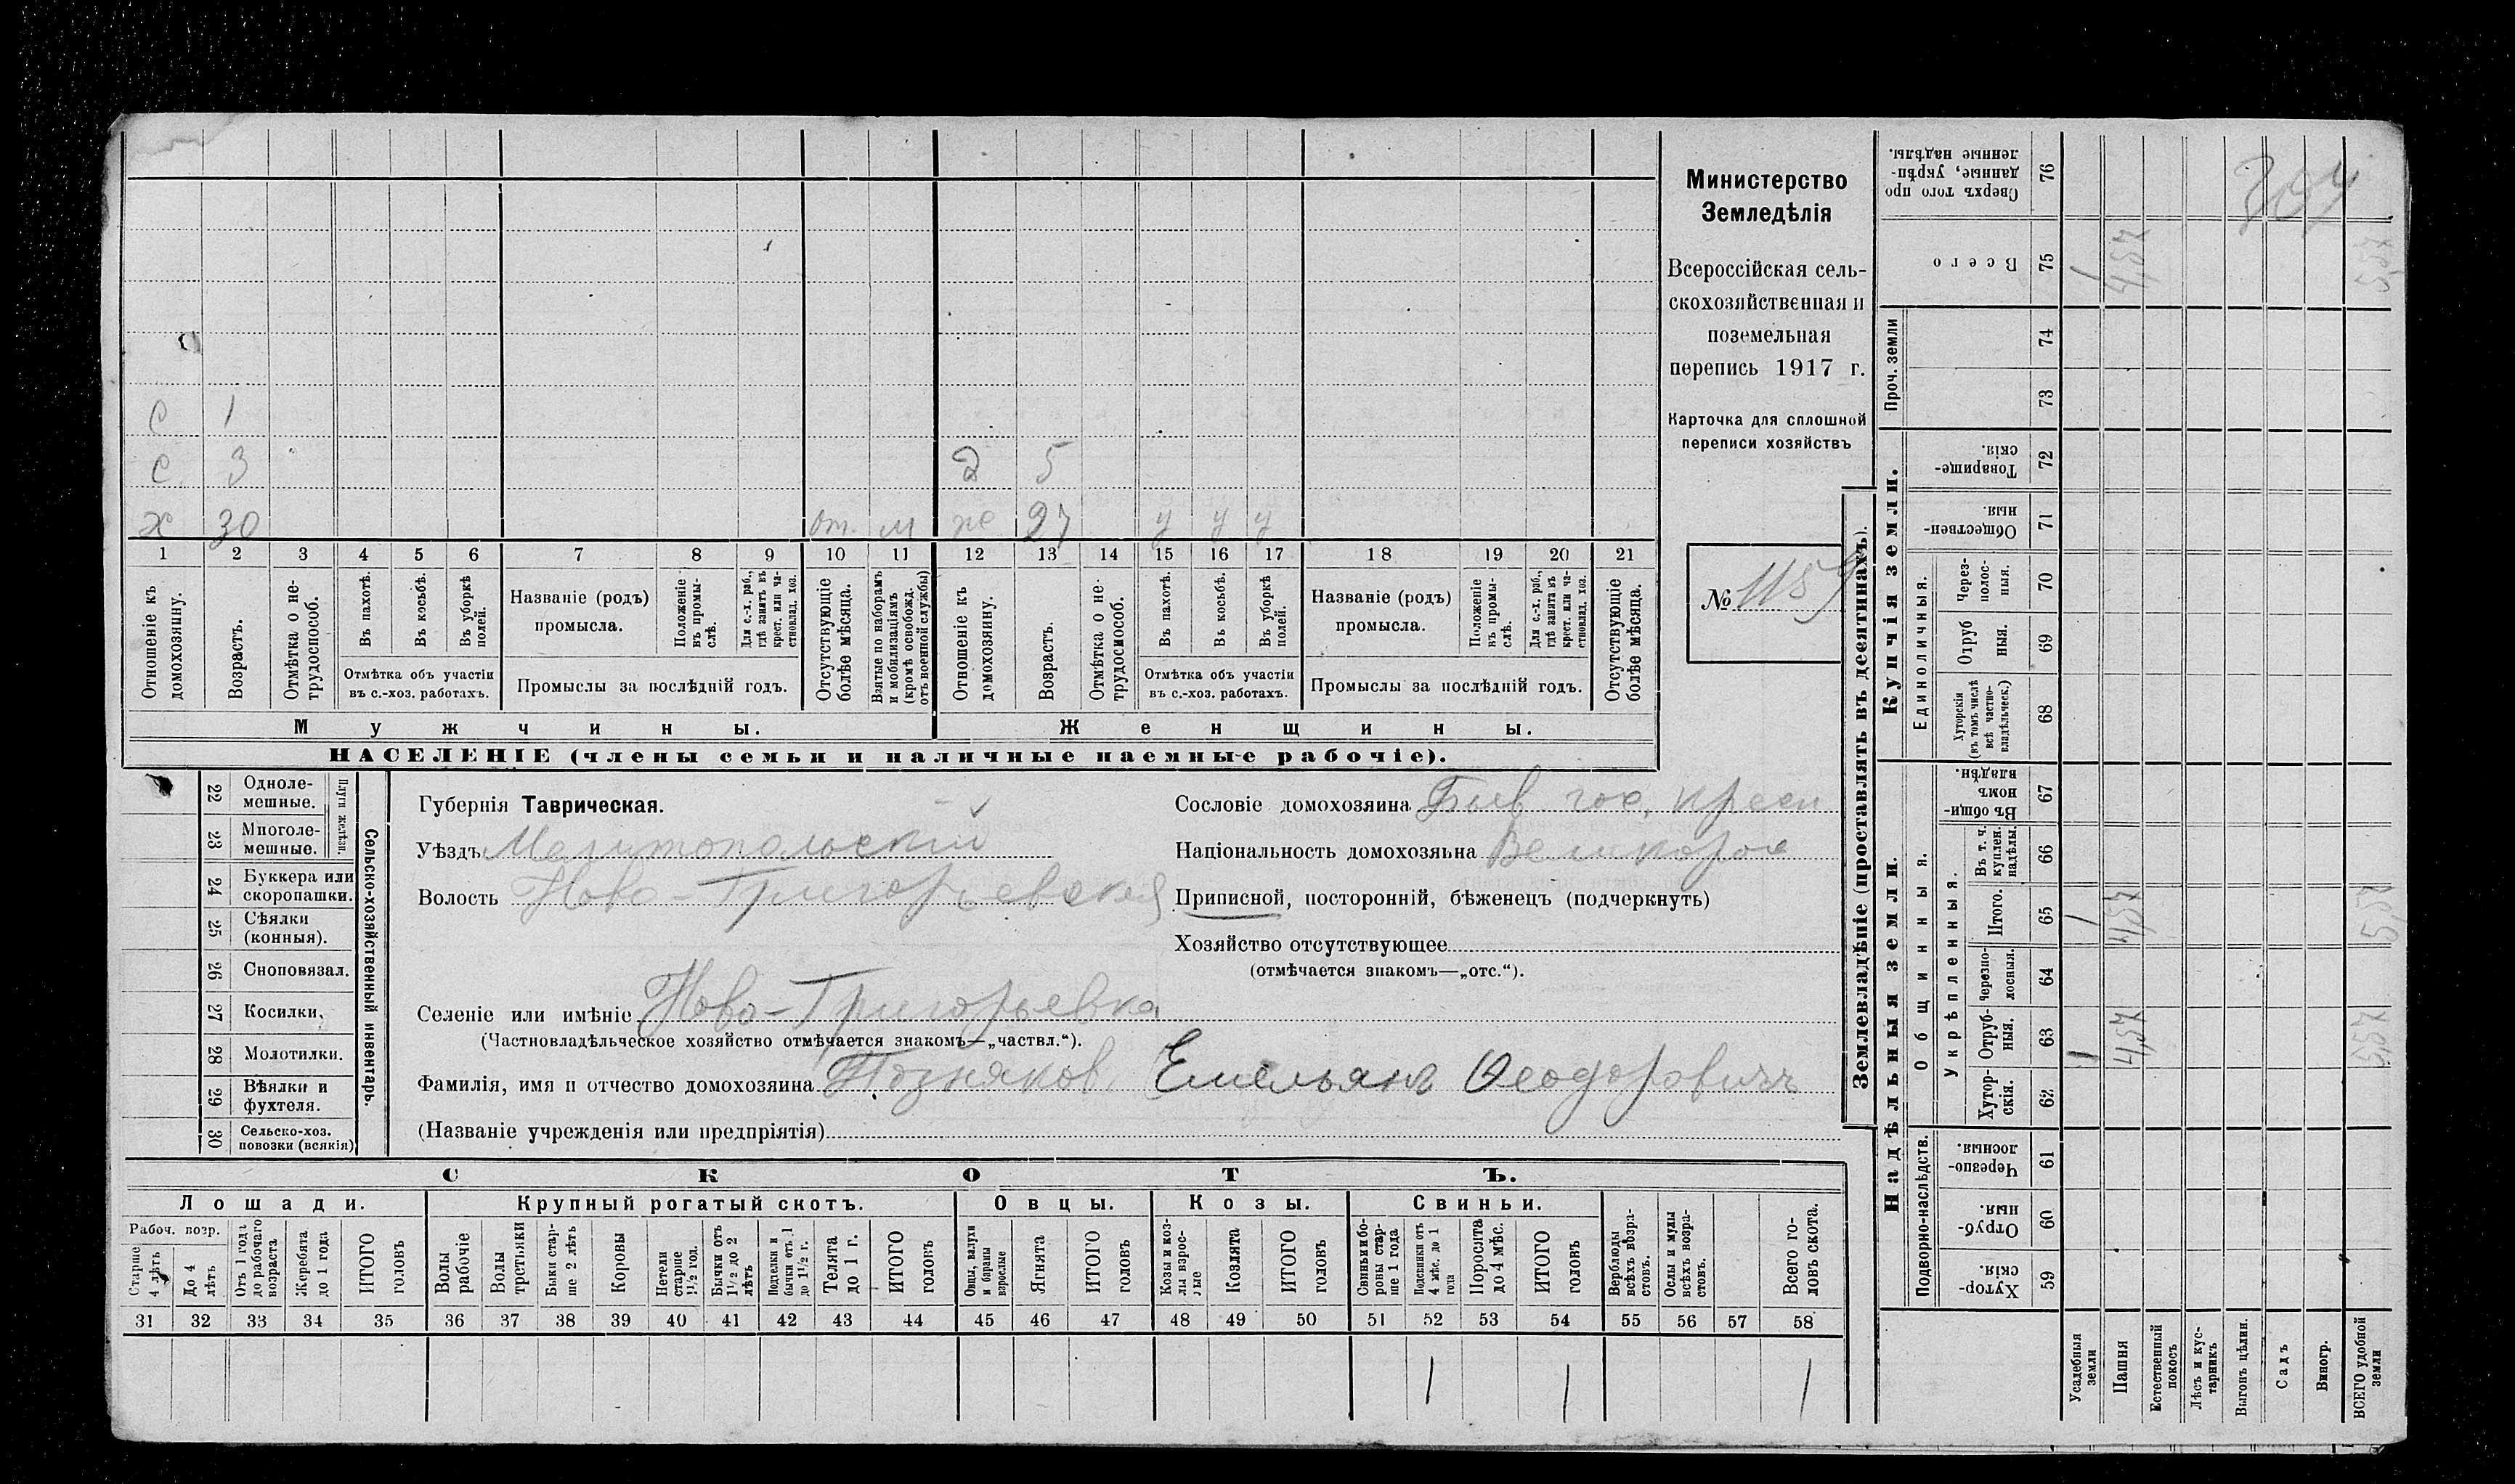 С 1
С 3 д 5
х 30 от. м же 27 у у у
1 2 3 4 5 6 7 8 9 10 11 12 13 14 15 16 17 18 19 20 21
Отношеніе къ домохозяину.
Возрастъ.
Отмѣтка о не-трудоспособ.
Въ пахотѣ.
Въ косьбѣ.
Въ уборкѣ полей.
Отмѣтка объ участіи
въ с.-хоз. работахъ.
Названіе (родъ)
промысла.
Положеніе въ промы-слѣ.
Для с.-х. раб., гдѣ занятъ въ крест. или ча-стновлад. хоз.
Промыслы за послѣдній годъ.
Отсутствующіе болѣе мѣсяца.
Взятые по наборамъ и мобилизаціямъ (кромѣ освобожд. отъ военной службы)
Отношеніе къ домохозяину.
Возрастъ.
Отмѣтка о не-трудоспособ.
Въ пахотѣ.
Въ косьбѣ.
Въ уборкѣ полей.
Отмѣтка объ участіи
въ с.-хоз. работахъ.
Названіе (родъ)
промысла.
Положеніе въ промы-слѣ.
Для с.-х. раб., гдѣ занята въ крест. или ча-стновлад. хоз.
Промыслы за послѣдній годъ.
Отсутствующіе болѣе мѣсяца.
Мужчины. Женщины.
НАСЕЛЕНІЕ (члены семьи и наличные наемные рабочіе).
Министерство
Земледѣлія
Всероссійская сель-
скохозяйственная и
поземельная
перепись 1917 г.
Карточка для сплошной
переписи хозяйствъ
№ 1157
22 Одноле-мешные.
23 Многоле-мешные.
Плуги желѣзн.
24 Буккера или скоропашки.
25 Сѣялки (конныя).
26 Сноповязал.
27 Косилки.
28 Молотилки.
29 Вѣялки и фухтеля.
30 Сельско-хоз. повозки (всякія)
Сельско-хозяйственный инвентарь.
Губернія Таврическая.
Уѣздъ Мелитопольскій
Волость Ново-Григорьевская
Сословіе домохозяина Быв. гос. крест
Національность домохозяина Великоросс
Приписной, посторонній, бѣженецъ (подчеркнуть)
Хозяйство отсутствующее
(отмѣчается знакомъ—„отс.“).
Селеніе или имѣніе Ново-Григорьевка
(Частновладѣльческое хозяйство отмѣчается знакомъ—„частвл.“).
Фамилія, имя и отчество домохозяина Позняков. Емельянъ Ѳеодоровичъ
(Названіе учрежденія или предпріятія)
СКОТЪ.
Лошади. Крупный рогатый скотъ. Овцы. Козы. Свиньи.
Рабоч. возр.
Старше 4 лѣтъ
До 4 лѣтъ
Отъ 1 года до рабочаго возраста
Жеребята до 1 года
ИТОГО головъ
Волы рабочіе
Волы третьяки
Быки стар-ше 2 лѣтъ
Коровы
Нетели старше 1½ год.
Бычки отъ 1½ до 2 лѣтъ
Подтелки и бычки отъ 1 до 1½ г.
Телята до 1 г.
ИТОГО головъ
Овцы, валухи и бараны взрослые
Ягнята
ИТОГО головъ
Козы и коз-лы взрос-лые
Козлята
ИТОГО головъ
Свиньи и бо-ровы стар-ше 1 года
Подсвинки отъ 4 мѣс. до 1 года
Поросята до 4 мѣс.
ИТОГО головъ
Верблюды всѣхъ возра-стовъ.
Ослы и мулы всѣхъ возра-стовъ.
Всего го-ловъ скота.
31 32 33 34 35 36 37 38 39 40 41 42 43 44 45 46 47 48 49 50 51 52 53 54 55 56 57 58
1 1 1
Землевладѣніе (проставлять въ десятинахъ).
Купчія земли.
Надѣльныя земли.
Сверхъ того про-данные, укрѣп-ленные надѣлы. 76
Всего 75 1 4,57 5,57
Проч. земли 74 73
Товарище-скія. 72
Обществен-ныя. 71
Единоличныя.
Через-полос-ныя. 70
Отруб ныя. 69
Хуторскія (въ томъ числѣ всѣ частно-владѣльческ.) 68
Общинныя.
Въ общин-номъ владѣн. 67
Укрѣпленныя.
Въ т. ч. куплен. надѣлы. 66
Итого. 65 1 4,57 5,57
Черезпо-лосныя. 64
Отруб-ныя. 63 1 4,57 5,57
Хутор-скія. 62
Подворно-наслѣдств.
Черезпо-лосныя. 61
Отруб-ныя. 60
Хутор-скія. 59
Усадебныя земли
Пашня
Естественный покосъ
Лѣсъ и кус-тарникъ
Выгонъ цѣлин.
Садъ
Виногр.
ВСЕГО удобной земли